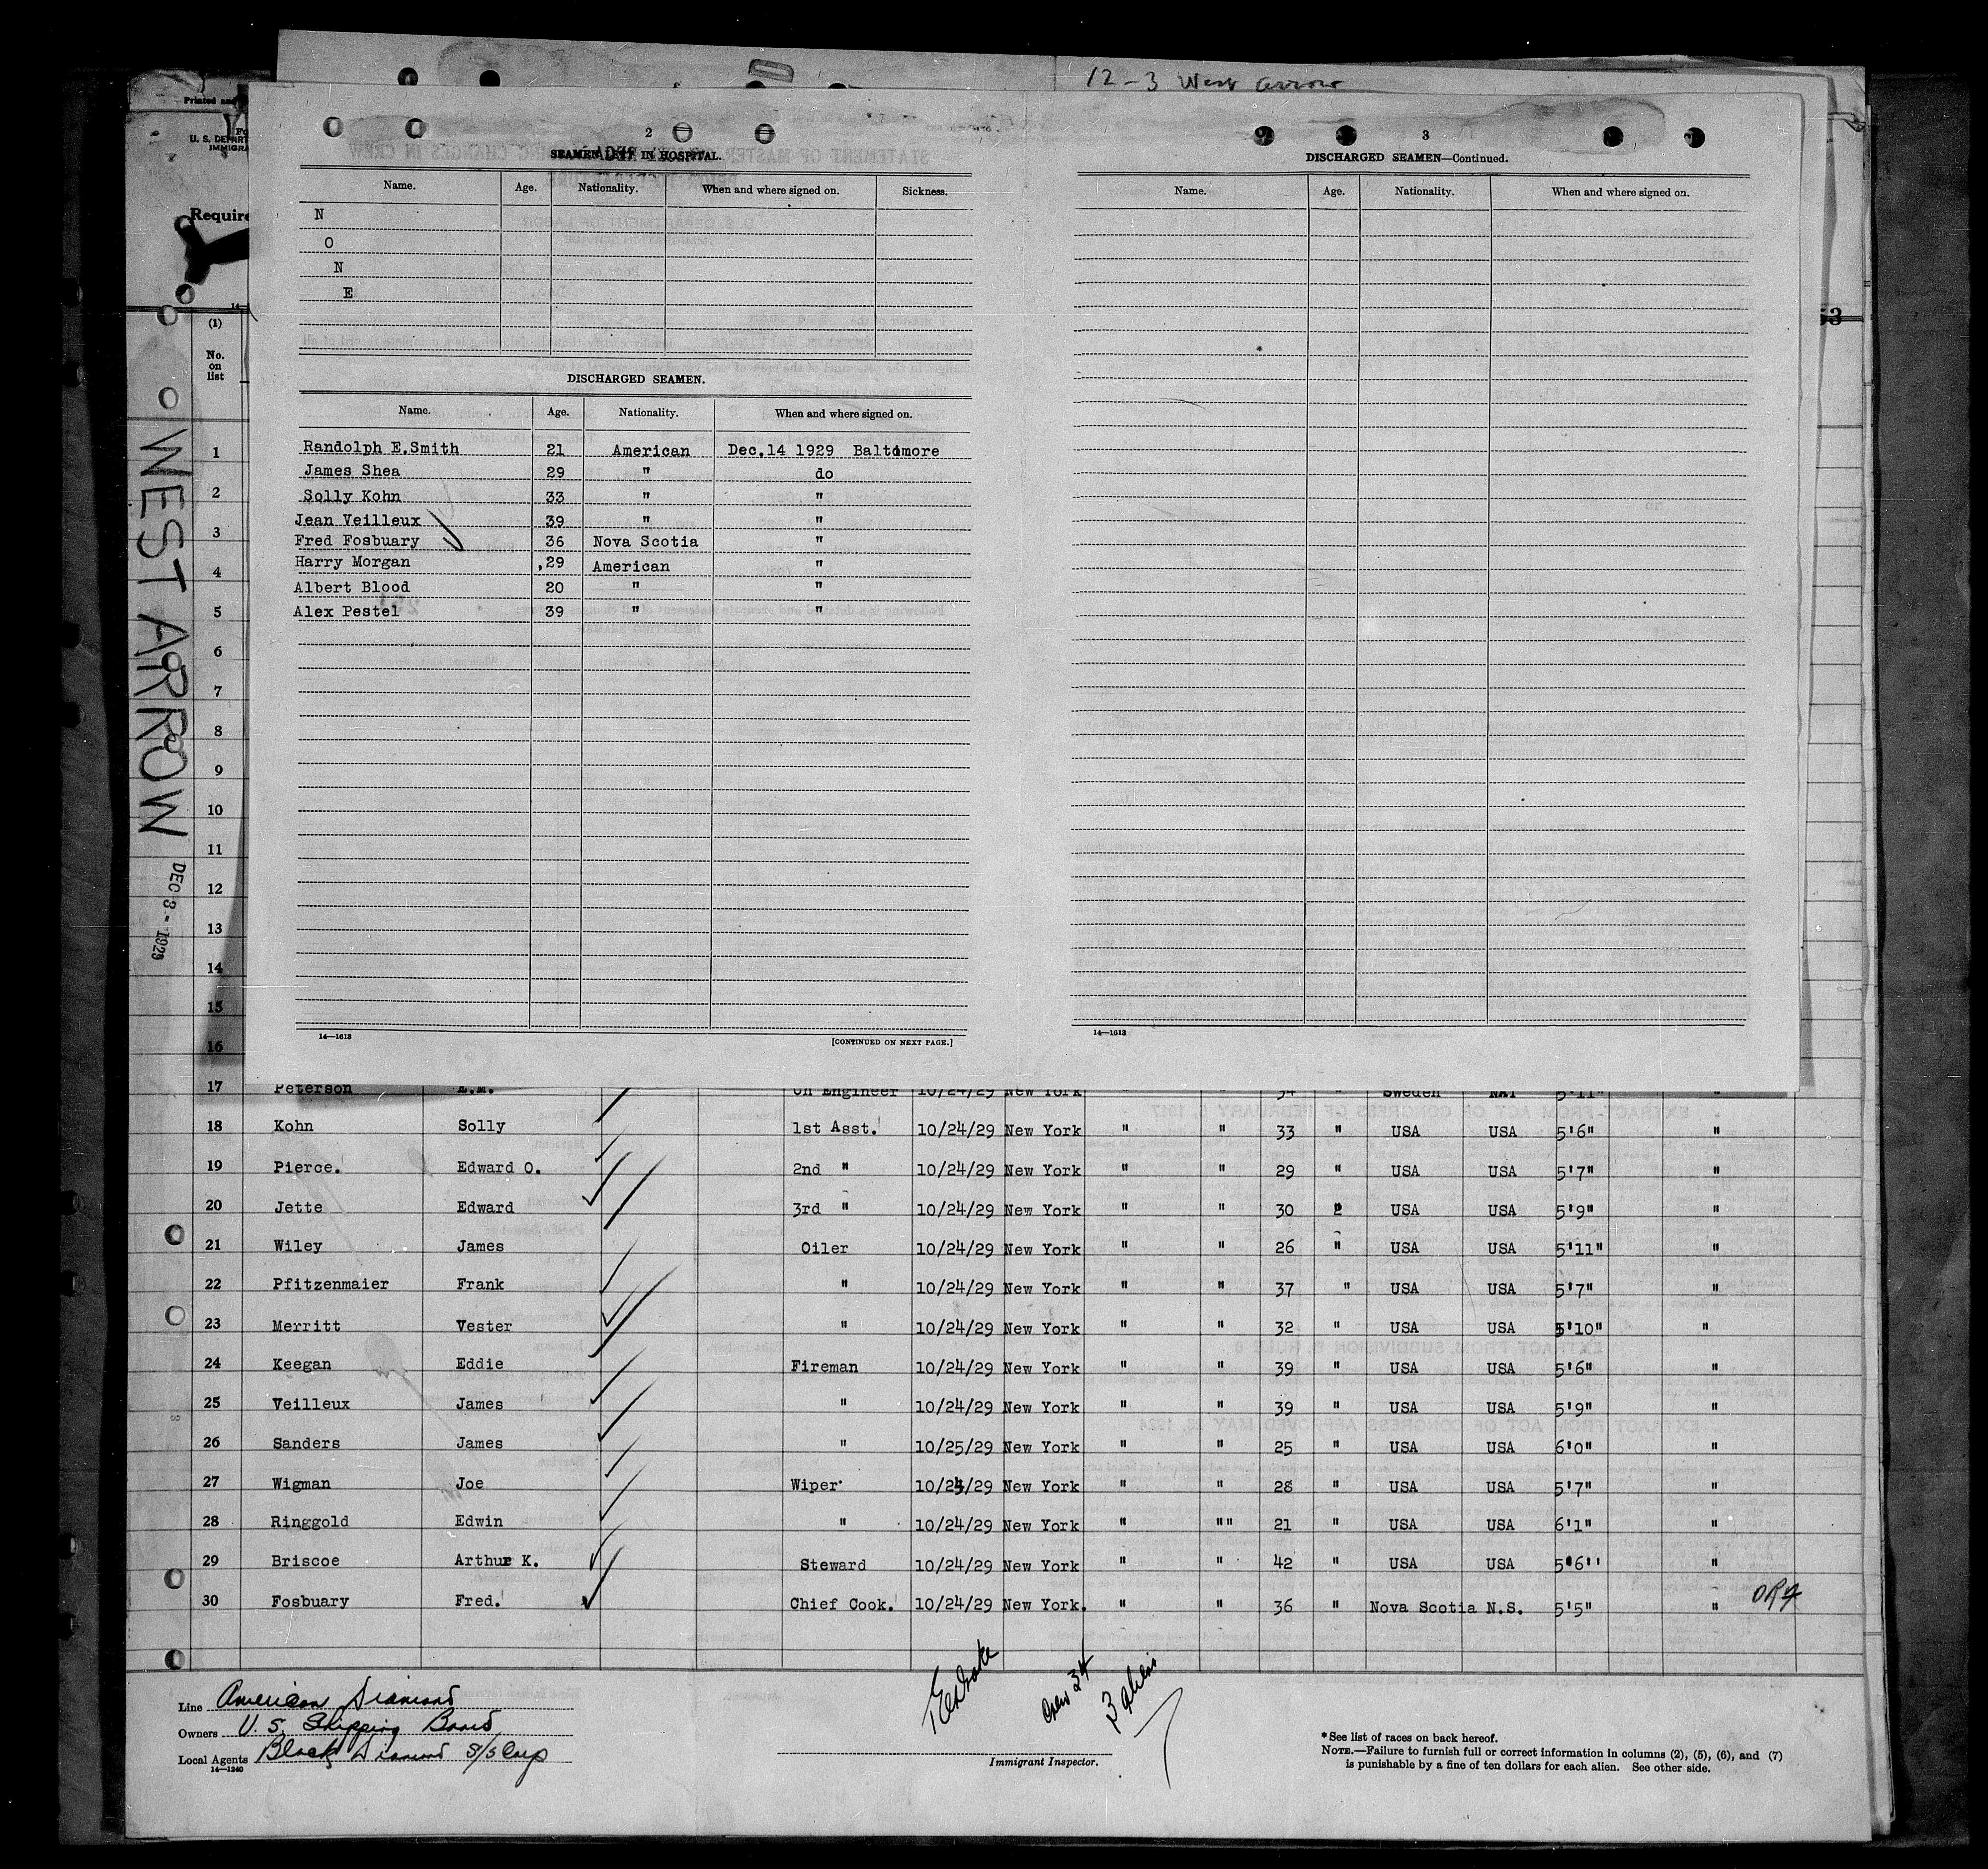 12-3 West Arrow
2
SEAMEN LEFT IN HOSPITAL.
Name. Age. Nationality. When and where signed on. Sickness.
N
O
N
E
DISCHARGED SEAMEN.
Name. Age. Nationality. When and where signed on.
Randolph E.Smith 21 American Dec.14 1929 Baltimore
James Shea 29 " do
Solly Kohn 33 " "
Jean Veilleux 39 " "
Fred Fosbuary 36 Nova Scotia "
Harry Morgan ,29 American "
Albert Blood 20 " "
Alex Pestel 39 " "
14—1613
[CONTINUED ON NEXT PAGE.]
3
DISCHARGED SEAMEN—Continued.
Name. Age. Nationality. When and where signed on.
14—1613
Printed and
U. S. DEPART
IMMIGRA
Require
14—
53
(1)
No.
on
list
WEST ARROW
DEC 3 - 1929
1
2
3
4
5
6
7
8
9
10
11
12
13
14
15
16
17 Peterson E.M. Ch Engineer 10/24/29 New York " " 34 " Sweden NAT 5'11" "
18 Kohn Solly 1st Asst. 10/24/29 New York " " 33 " USA USA 5'6" "
19 Pierce. Edward O. 2nd " 10/24/29 New York " " 29 " USA USA 5'7" "
20 Jette Edward 3rd " 10/24/29 New York " " 30 " USA USA 5'9" "
21 Wiley James Oiler 10/24/29 New York " " 26 " USA USA 5'11" "
22 Pfitzenmaier Frank " 10/24/29 New York " " 37 " USA USA 5'7" "
23 Merritt Vester " 10/24/29 New York " " 32 " USA USA 5'10" "
24 Keegan Eddie Fireman 10/24/29 New York " " 39 " USA USA 5'6" "
25 Veilleux James " 10/24/29 New York " " 39 " USA USA 5'9" "
26 Sanders James " 10/25/29 New York " " 25 " USA USA 6'0" "
27 Wigman Joe Wiper 10/24/29 New York " " 28 " USA USA 5'7" "
28 Ringgold Edwin " 10/24/29 New York " "" 21 " USA USA 6'1" "
29 Briscoe Arthur K. Steward 10/24/29 New York " " 42 " USA USA 5'6'' "
30 Fosbuary Fred. Chief Cook. 10/24/29 New York. " " 36 " Nova Scotia N.S. 5'5" "
Line American Diamond
Owners U. S. Shipping Board
Local Agents Black Diamond S/S Corp
14—1240
Crew 34
3 aliens
Immigrant Inspector.
*See list of races on back hereof.
NOTE.—Failure to furnish full or correct information in columns (2), (5), (6), and (7)
is punishable by a fine of ten dollars for each alien. See other side.